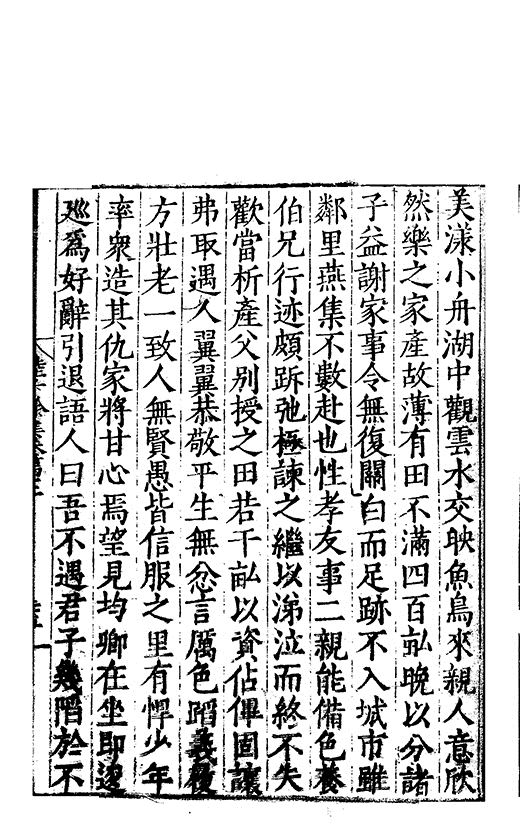 美漾小舟湖中觀雲水交映魚鳥來親人意欣
然樂之家產故薄有田不滿四百畝晚以分諸
子益謝家事令無復關白而足跡不入城市雖
鄰里燕集不數赴也性孝友事二親能備色養
伯兄行迹頗跅弛極諫之繼以涕泣而終不失
歡當析產父別授之田若干畝以資佔俾固讓
弗取遇人翼翼恭敬平生無忿言厲色蹈義履
方壯老一致人無賢愚皆信服之里有悍少年
率衆造其仇家將甘心焉望見均卿在坐即逡
廵爲好辭引退語人曰吾不遇君子幾陷於不